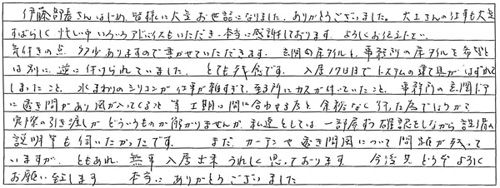 伊藤部長さんはじめ、皆様に大変お世話になりました。ありがとうございました。大工さんの仕事も大変
すばらしく 忙しい中 いろいろアドバイスもいただき、本当に感謝しております。ようにお伝え下さい。
気付きの点 多少ありますので書かせていただきます。玄関の床タイルと、事務所の床タイルを希望と
は別に 逆に付けられていました。とても残念です。入居17日目でシステムの建て具がはずれて
しまったこと、水まわりのシリコンが仕事が雑すぎて、至る所にカスが付いていたこと、事務所の玄関ドア
に透き間があり風が入ってくること 等 工期に間に合わせる為と 余裕なく行った為でしょうか
実際の引き渡しがどういうものか解かりませんが、私達としては一部屋ずつ確認をしながら設備の
説明等も伺いたかったです。また、カーテンや 透き間風について問題が残って
いますが、ともあれ、無事入居出来 うれしく思っております 今後共どうぞよろしく
お願い致します 本当に ありがとうございました